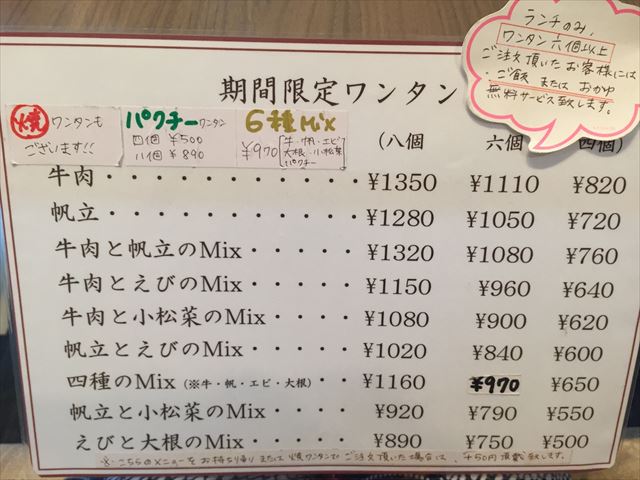 ランチのみ、
ワンタン六個以上
ご注文頂いたお客様には
・ご飯 または おかゆ
無料サービス致します。
期間限定ワンタン
焼 ワンタンも
ございます!!
パクチーワンタン
四個 ¥500
八個 ¥890
6種Mix
¥970 [牛・帆・エビ・大根・小松菜 パクチー]
(八個) 六個 四個)
牛肉・・・・・・・・・・・ ¥1350 ¥1110 ¥820
帆立・・・・・・・・・・・ ¥1280 ¥1050 ¥720
牛肉と帆立のMix・・・・・ ¥1320 ¥1080 ¥760
牛肉とえびのMix・・・・・ ¥1150 ¥960 ¥640
牛肉と小松菜のMix・・・・ ¥1080 ¥900 ¥620
帆立とえびのMix・・・・・ ¥1020 ¥840 ¥600
四種のMix(※牛・帆・エビ・大根)・・ ¥1160 ¥970 ¥650
帆立と小松菜のMix・・・・ ¥920 ¥790 ¥550
えびと大根のMix・・・・・ ¥890 ¥750 ¥500
※・こちらのメニューをお持ち帰り または 焼ワンタンで ご注文頂いた場合は、+50円頂戴致します。